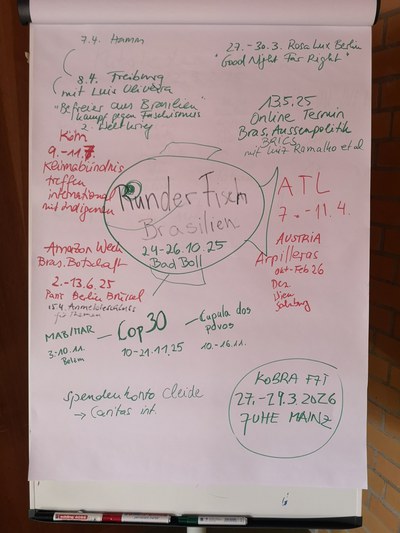 7.4. Hamm
8.4. Freiburg
mit Luiz Oliveira
"Befreier aus Brasilien"
Kampf gegen Faschismus
2. Weltkrieg
27.-30.3. Rosa Lux Berlin
"Good Night Far Right"
13.5.25
Online Termin
Bras. Aussenpolitik
BRICS
mit Luiz Ramalho et al
Köln
9.-11.7
Klimabündnis
treffen
international
mit Indigenen
Amazon Week
Bras. Botschaft
2.-13.6.25
Paris Berlin Brüssel
15.4. Anmeldeschluss
für Themen
Runder Fisch
Brasilien
24-26.10.25
Bad Boll
ATL
7.-11.4.
AUSTRIA
Arpilleras
Okt-Feb 26
Dez
Wien
Salzburg
MABITAR
3-10.11
Belem
COP30
10-21.11.25
Cupula dos
povos
10.-16.11.
Spendenkonto Cleide
→ Caritas int.
KOBRA FJT
27.-29.3.2026
JUHE MAINZ